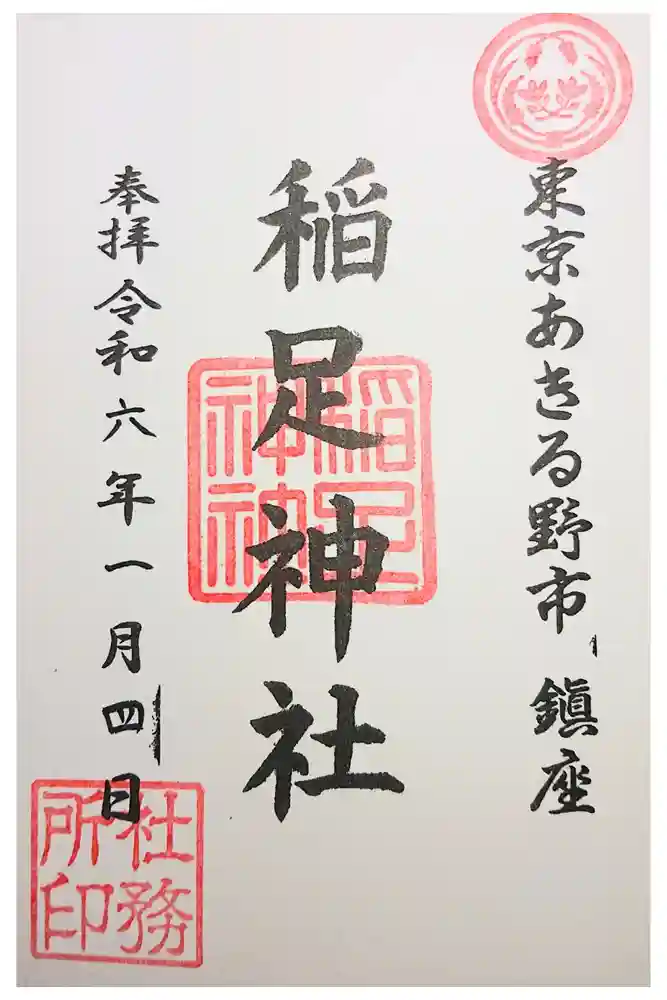 東京あきる野市鎮座
稲足神社
奉拝令和六年一月四日
社務
所印